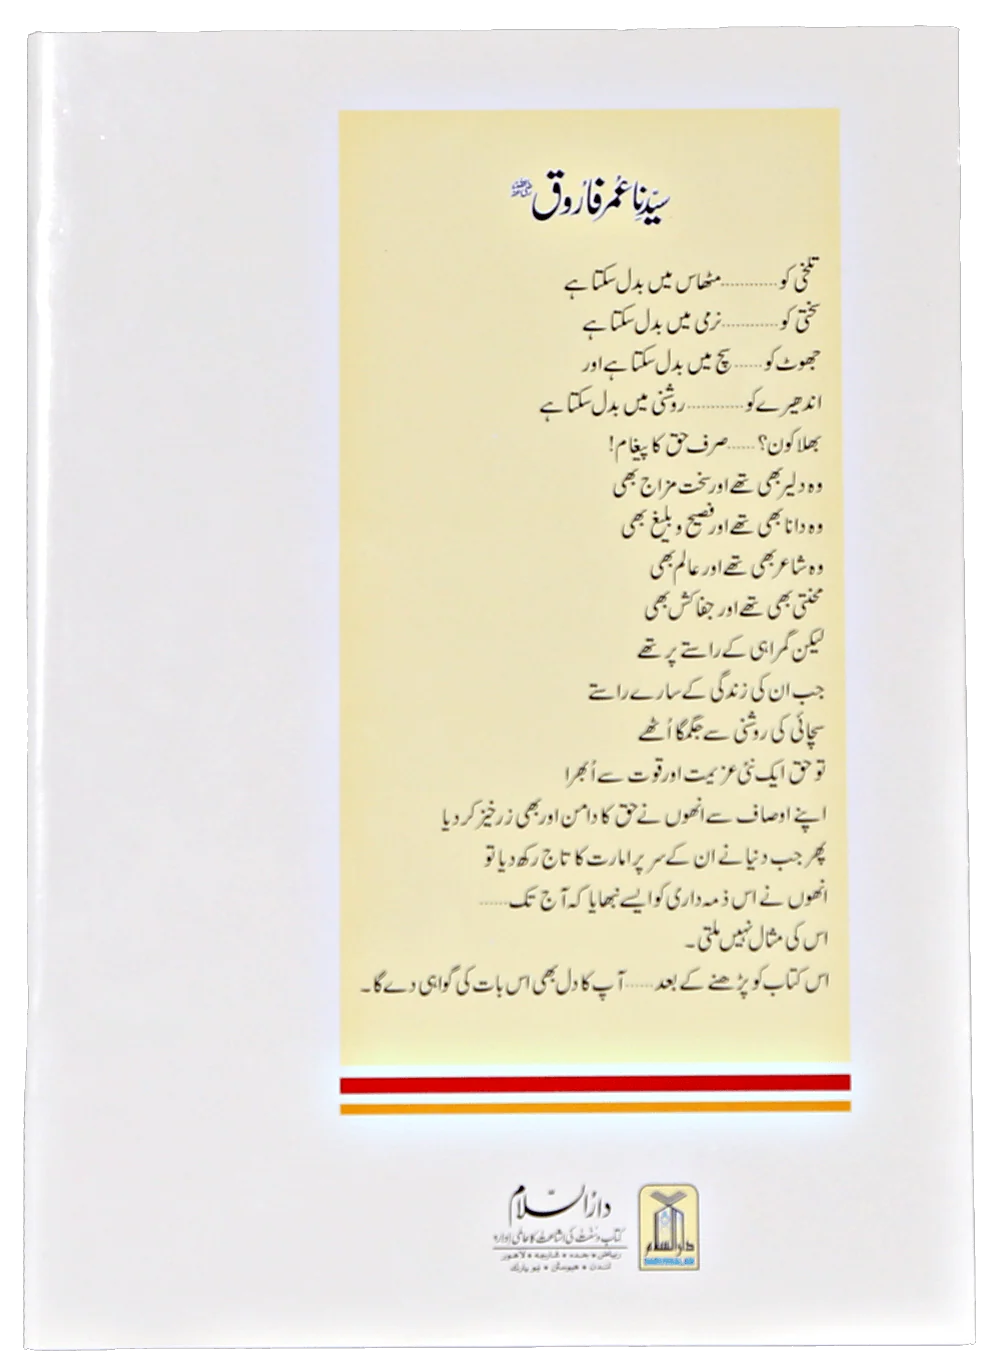 سیّدنا عُمر فارُوق رضی اللہ عنہ
تلخی کو............مٹھاس میں بدل سکتا ہے
سختی کو............نرمی میں بدل سکتا ہے
جھوٹ کو......سچ میں بدل سکتا ہے اور
اندھیرے کو............روشنی میں بدل سکتا ہے
بھلا کون؟......صرف حق کا پیغام!
وہ دلیر بھی تھے اور سخت مزاج بھی
وہ دانا بھی تھے اور فصیح و بلیغ بھی
وہ شاعر بھی تھے اور عالم بھی
محنتی بھی تھے اور جفاکش بھی
لیکن گمراہی کے راستے پر تھے
جب ان کی زندگی کے سارے راستے
سچائی کی روشنی سے جگمگا اُٹھے
تو حق ایک نئی عزیمت اور قوت سے اُبھرا
اپنے اوصاف سے انھوں نے حق کا دامن اور بھی زرخیز کر دیا
پھر جب دنیا نے ان کے سر پر امارت کا تاج رکھ دیا تو
انھوں نے اس ذمہ داری کو ایسے نبھایا کہ آج تک......
اس کی مثال نہیں ملتی۔
اس کتاب کو پڑھنے کے بعد......آپ کا دل بھی اس بات کی گواہی دے گا۔
دارُالسّلام
کتاب و سُنّت کی اشاعت کا عالمی ادارہ
ریاض • جدہ • شارجہ • لاہور
لندن • ہیوسٹن • نیو یارک
دارالسلام
DARUSSALAM